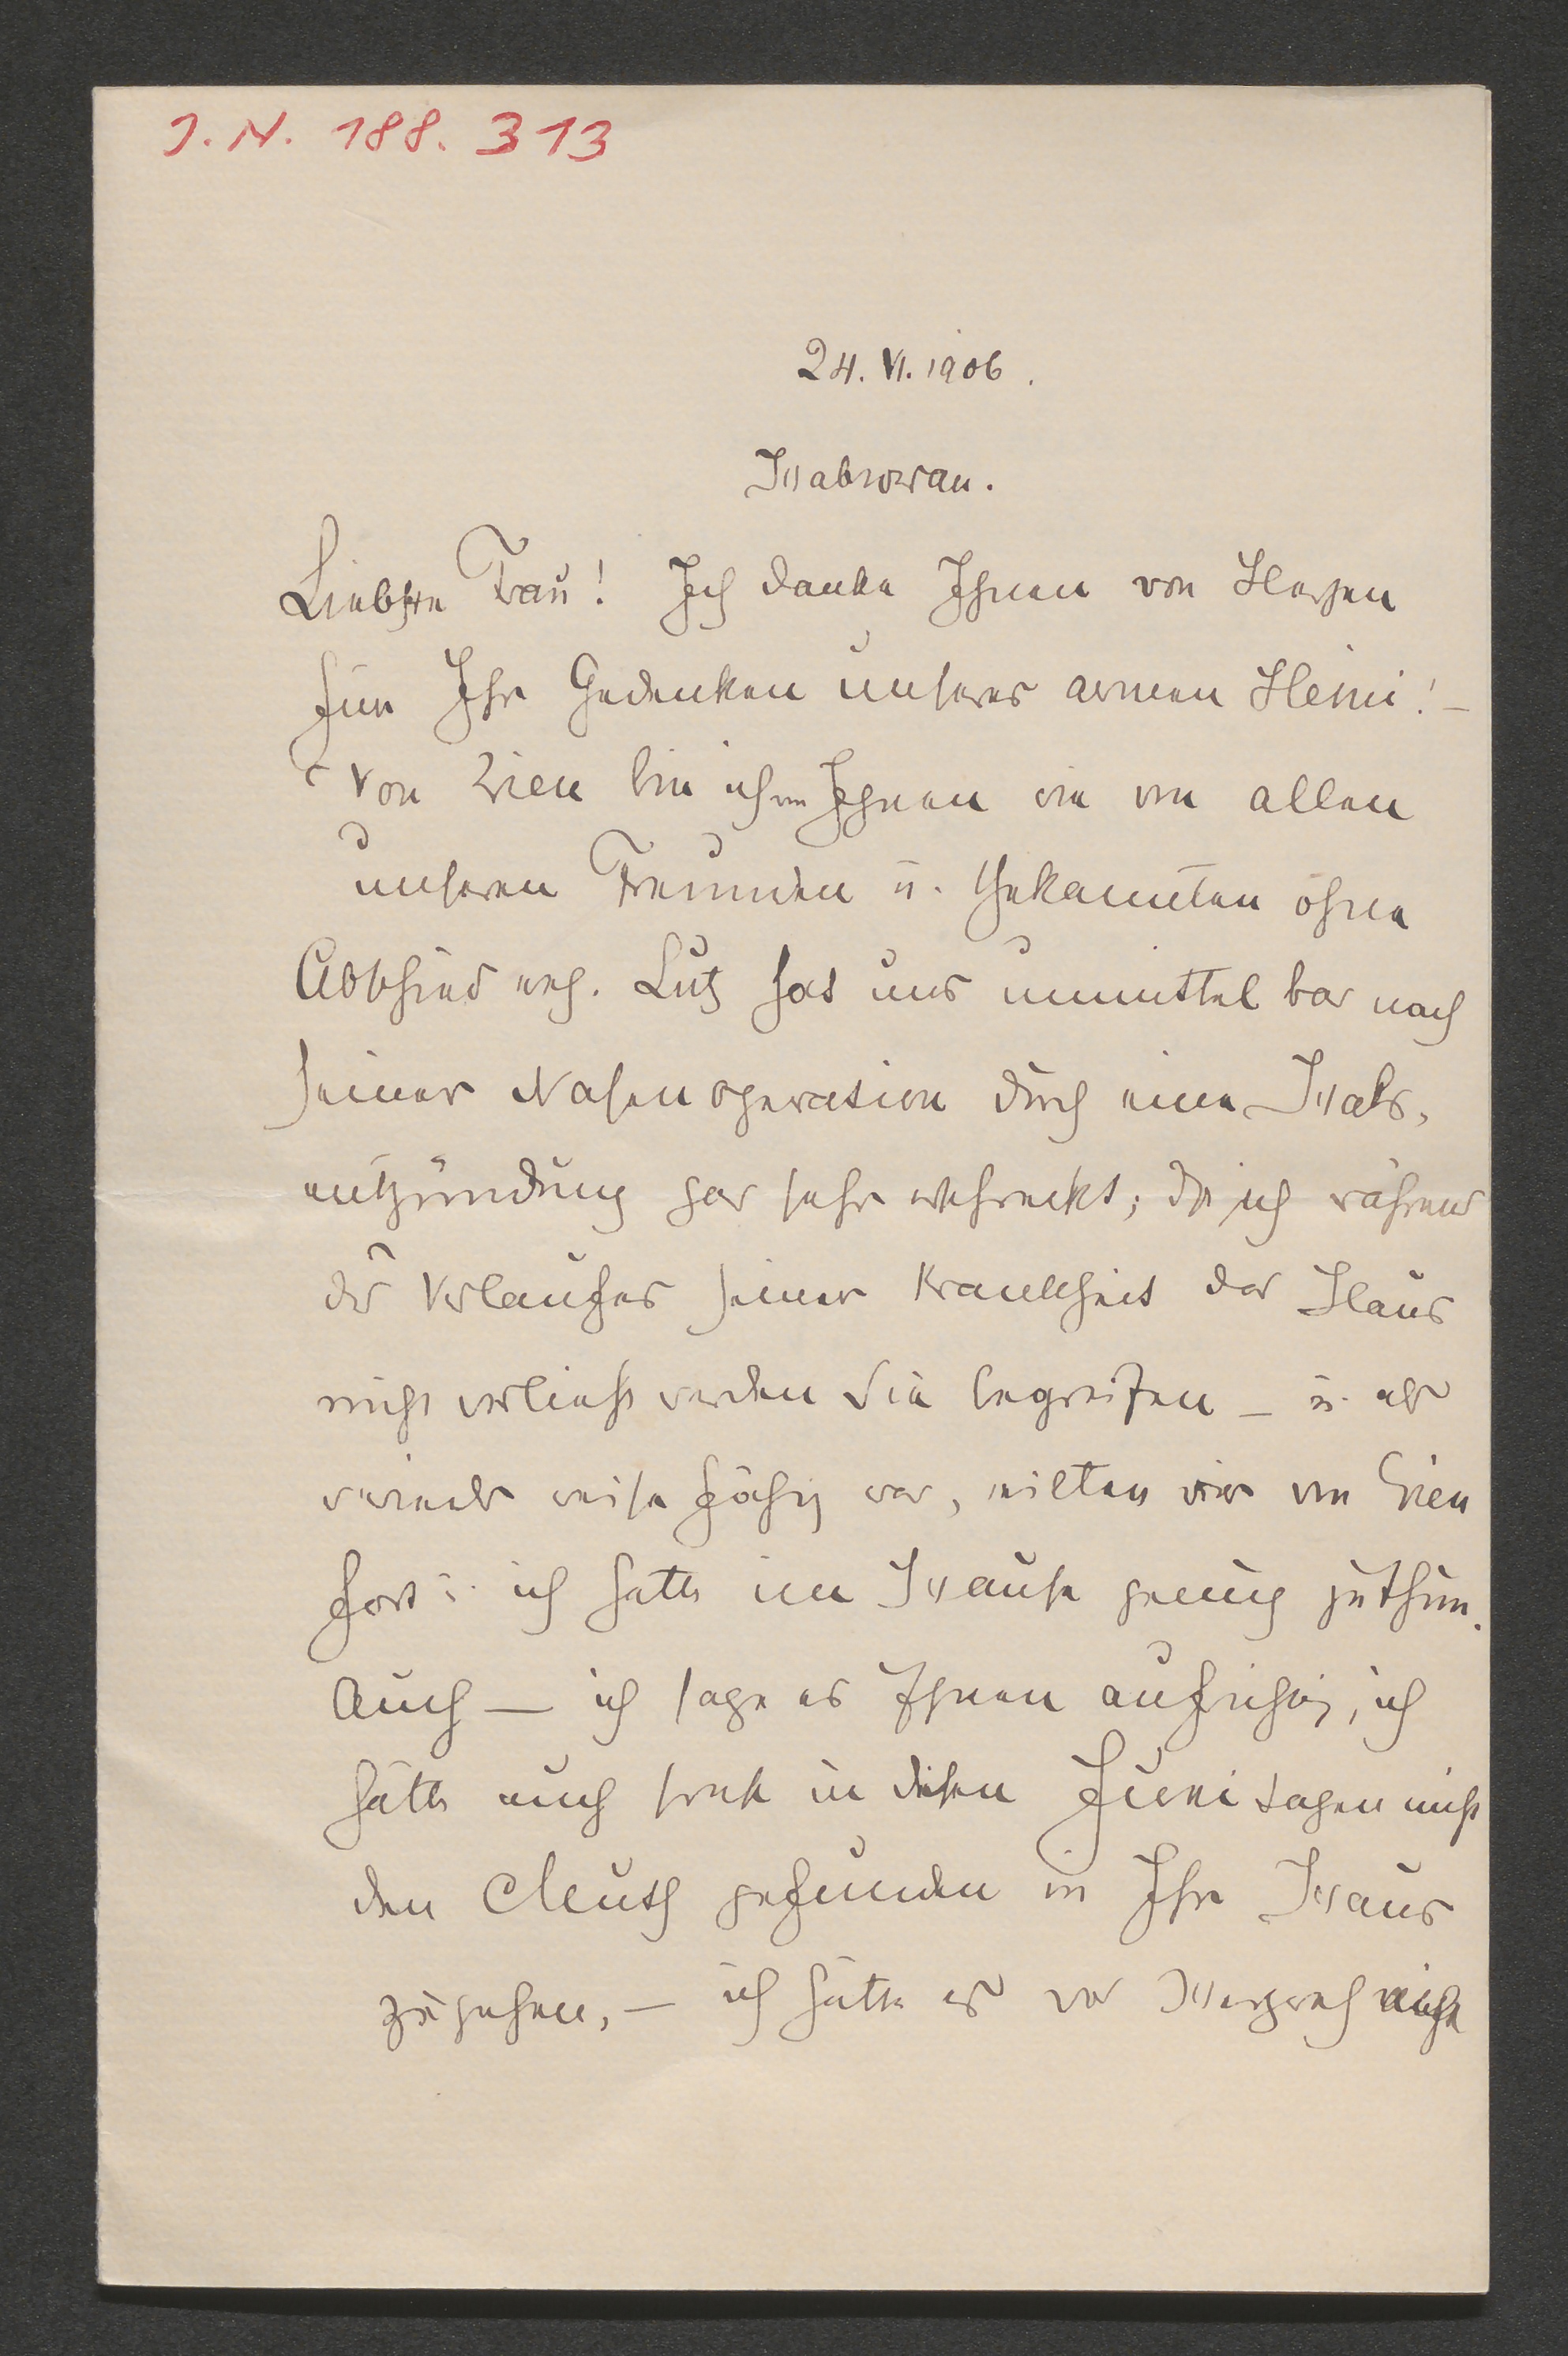 J. N. 188. 313
24. VI. 1906.
Habrovan.
Liebste Frau! Ich danke Ihnen von Herzen
für Ihr Gedenken unseres armen Heini! –
Von Wien bin ich von Ihnen wie von allen
unseren Freunden u. Bekannten ohne
Abschied weg. Lutz hat uns unmittelbar nach
seiner Nasenoperation durch eine Hals-
entzündung gar sehr erschreckt; daß ich während
des Verlaufes seiner Krankheit das Haus
nicht verließ werden Sie begreifen – u. als er
wieder reisefähig war, eilten wir von Wien
fort u. ich hatte im Hause genug zu thun.
Auch – ich sage es Ihnen aufrichtig, ich
hätte auch sonst in diesen Junitagen nicht
den Muth gefunden in Ihr Haus
zu gehen, – ich hätte es vor Herzweh nicht